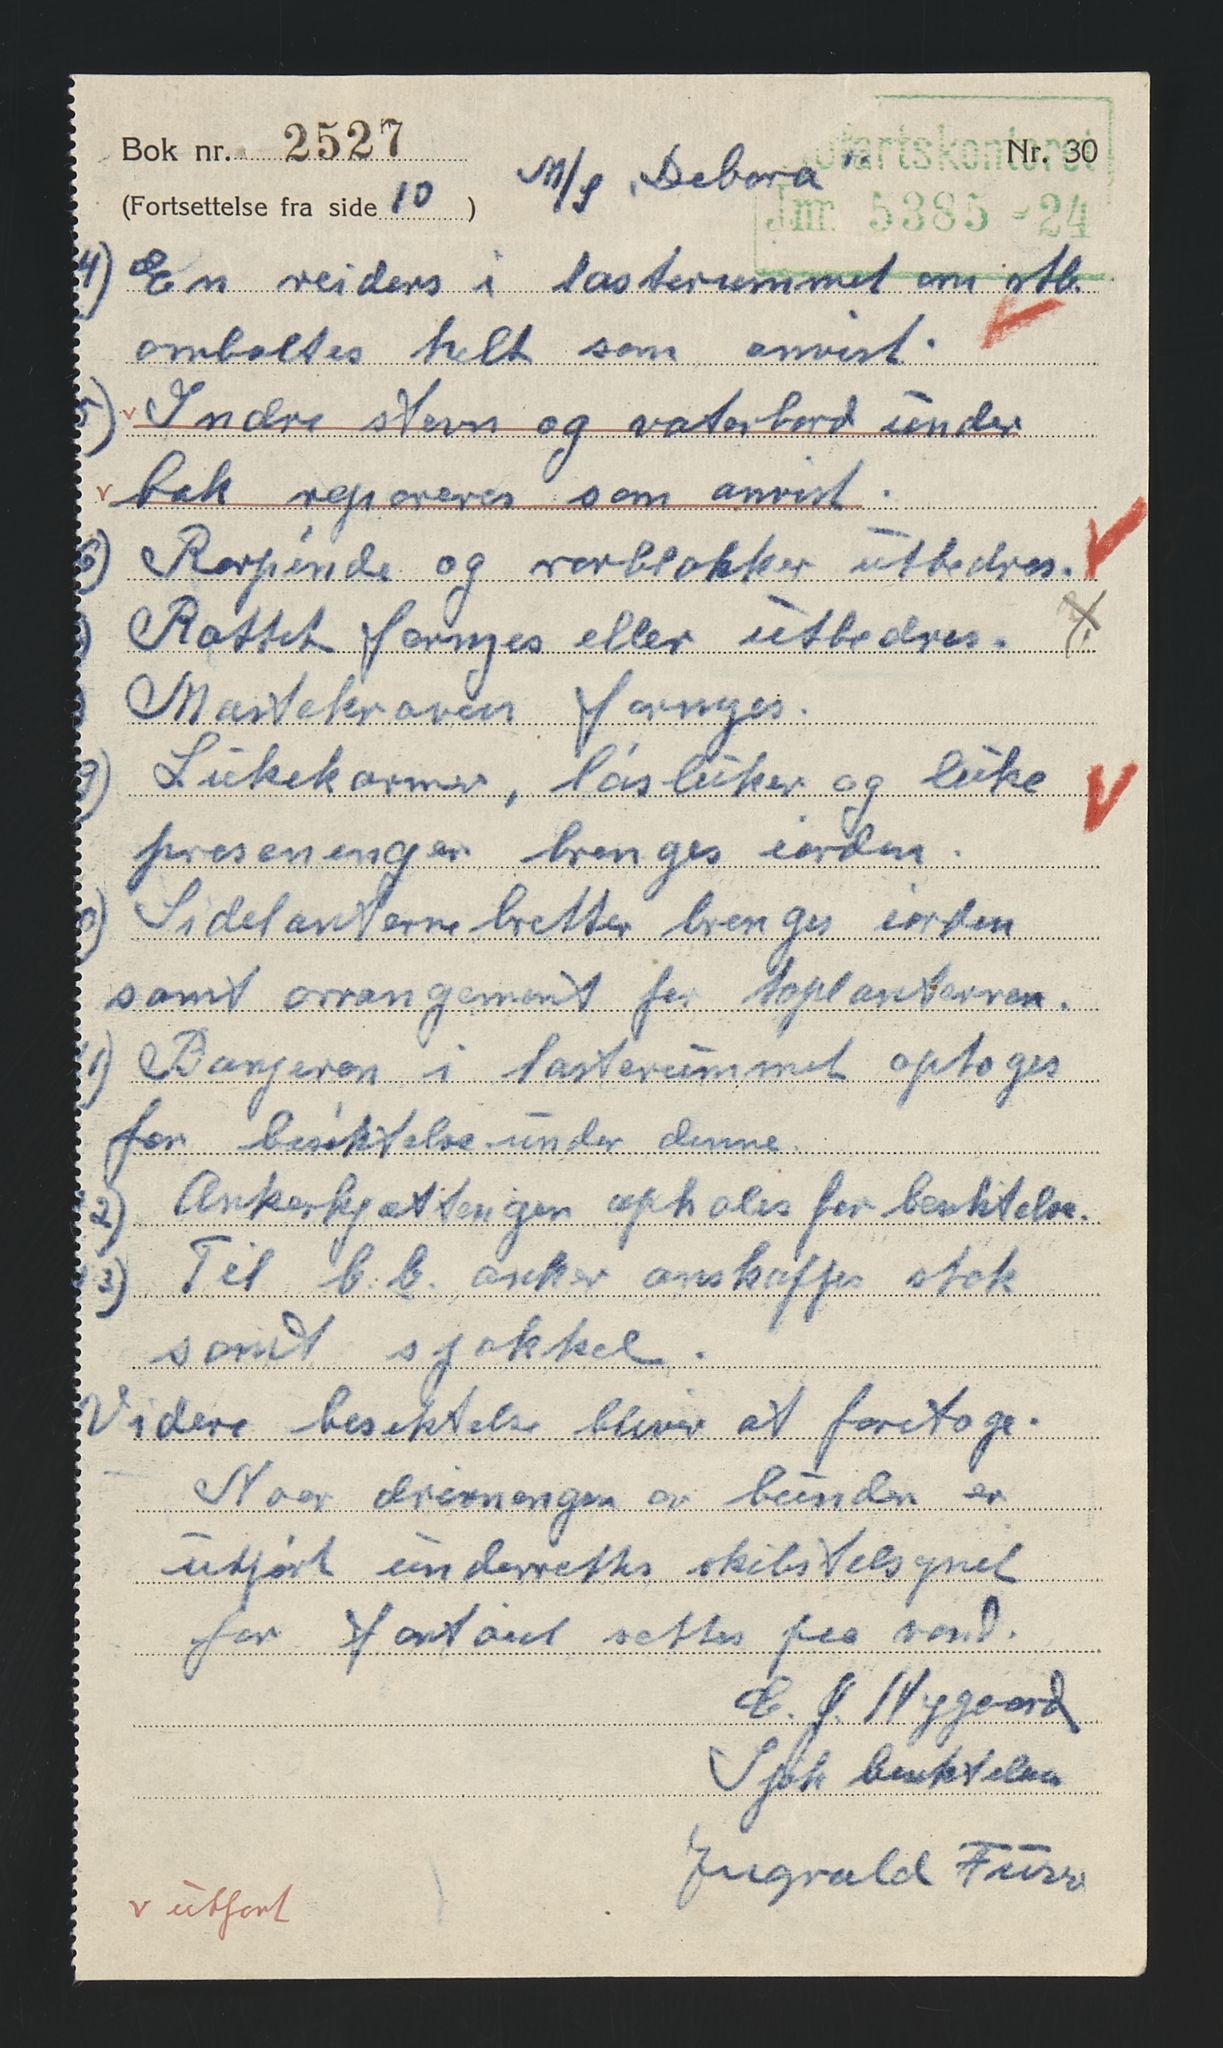 Bok nr. 2527
Nr. 30
(Fortsettelse fra side 10 )
M/S "Debora"
Sjøfartskontoret
Jnr. 5385 - 24
4) En reiders i lasterummet om stb.
omboltes helt som anvist.
5) v Indre stevn og vaterbord under
v bak repareres som anvist.
6) Rorpinde og rorblokker utbedres.
) Rattet fornyes eller utbedres.
) Mastekraven fornyes.
9) Lukekarmer, løsluker og luke
presenenger brenges iorden.
0) Sidelanternebretter brenges iorden
samt arrangement for toplanternen.
11) Banjeren i lasterummet optages
for besiktelse under denne.
12) Ankerkjættengen ophales for besiktelse.
13) Til b.b. anker anskaffes stok
samt sjakkel.
Videre besiktelse blivir at foretage.
Naar drivnengen av bunden er
utført underrettes skibstilsynet
før fartøiet settes paa vand.
E. J. Nygaard
Sjøk besiktelsen
Ingvald Furre
v utført